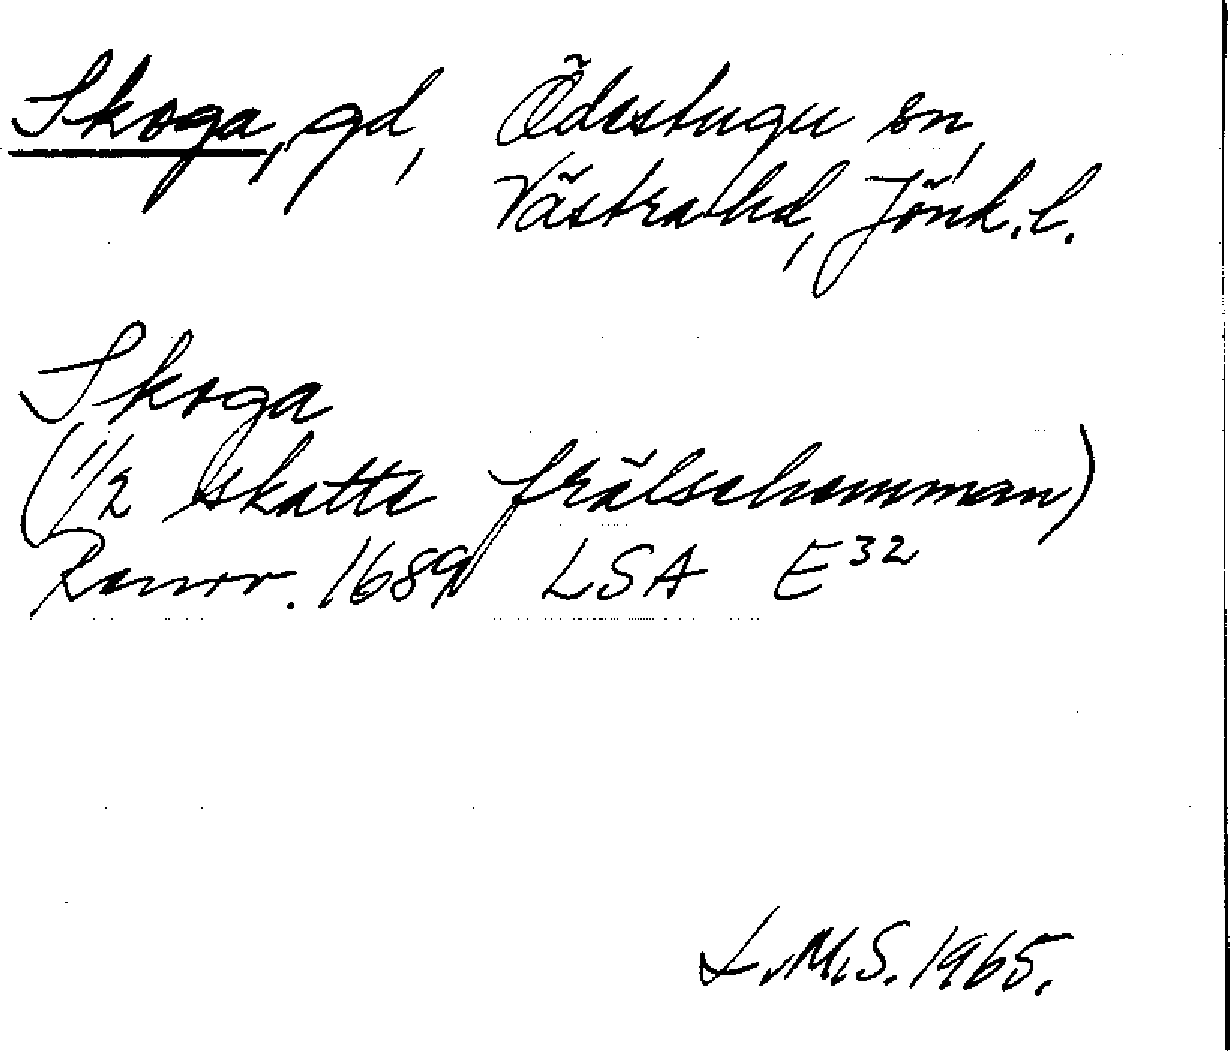 Skoga, gd, Ödestugu sn,
Västra hd, Jönk. l.
Skoga
(1/2 skatte frälsehemman)
Rannr. 1689 LSA E32
L.M.S. 1965.